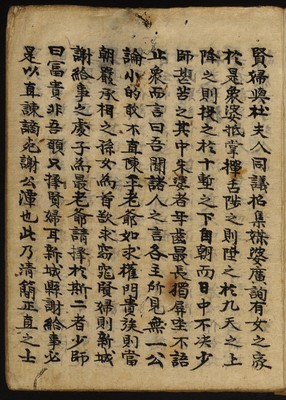 賢婦與杜夫人同議招集媒婆廣詢有女之家
於是衆婆抵掌揮舌陞之則陞之於九天之上
降之則投之於十塹之下自朝而日中不决少
師甚苦之其中朱婆者年齒最長獨屛坐不語
止衆而言曰吾聞諸人之言各主所見無一公
論小的敢不直陳乎老爺如求權門貴族則當
朝嚴丞相之孫女爲首欲求窈窕賢婦則新城
謝給事之處子爲最老爺請擇於斯二者少師
曰富貴非吾願只擇賢婦耳新城縣謝給事必
是以直諫謫死謝公潭也此乃清簡正直之士